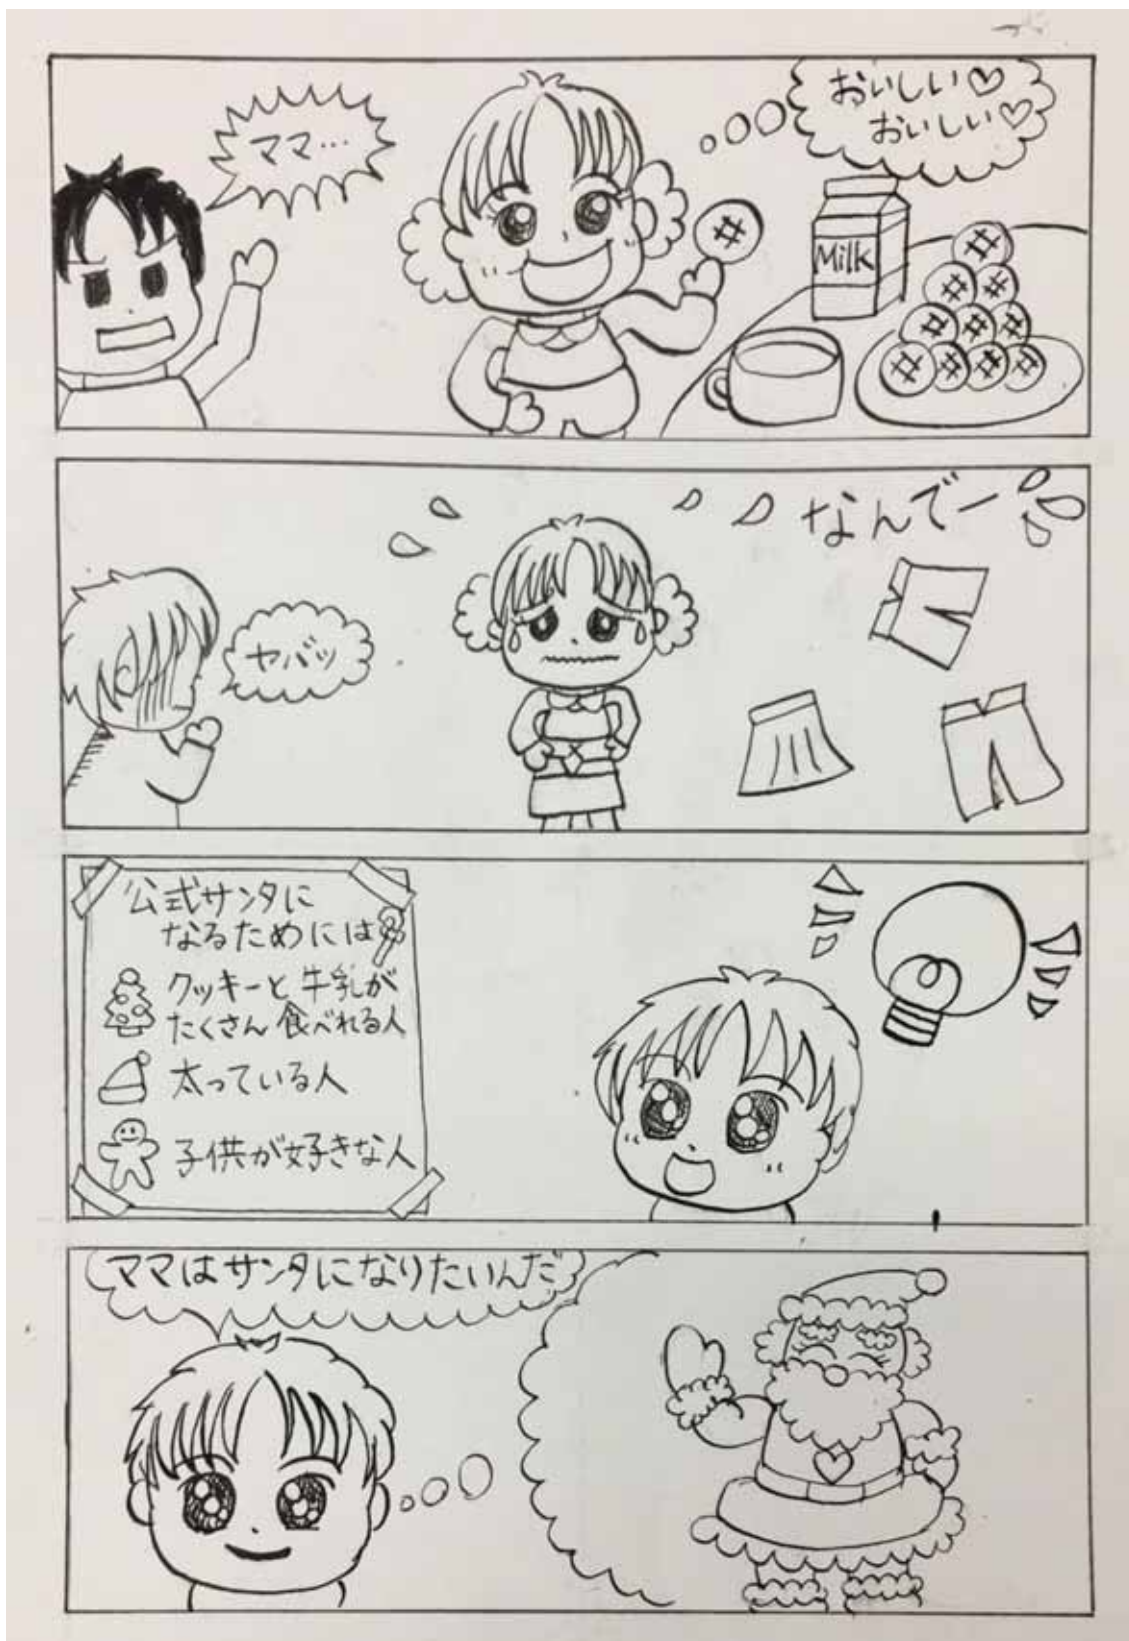 ママ…
おいしい♡
おいしい♡
Milk
なんでー
ヤバッ
公式サンタに
なるためには
クッキーと牛乳が
たくさん食べれる人
太っている人
子供が好きな人
ママはサンタになりたいんだ